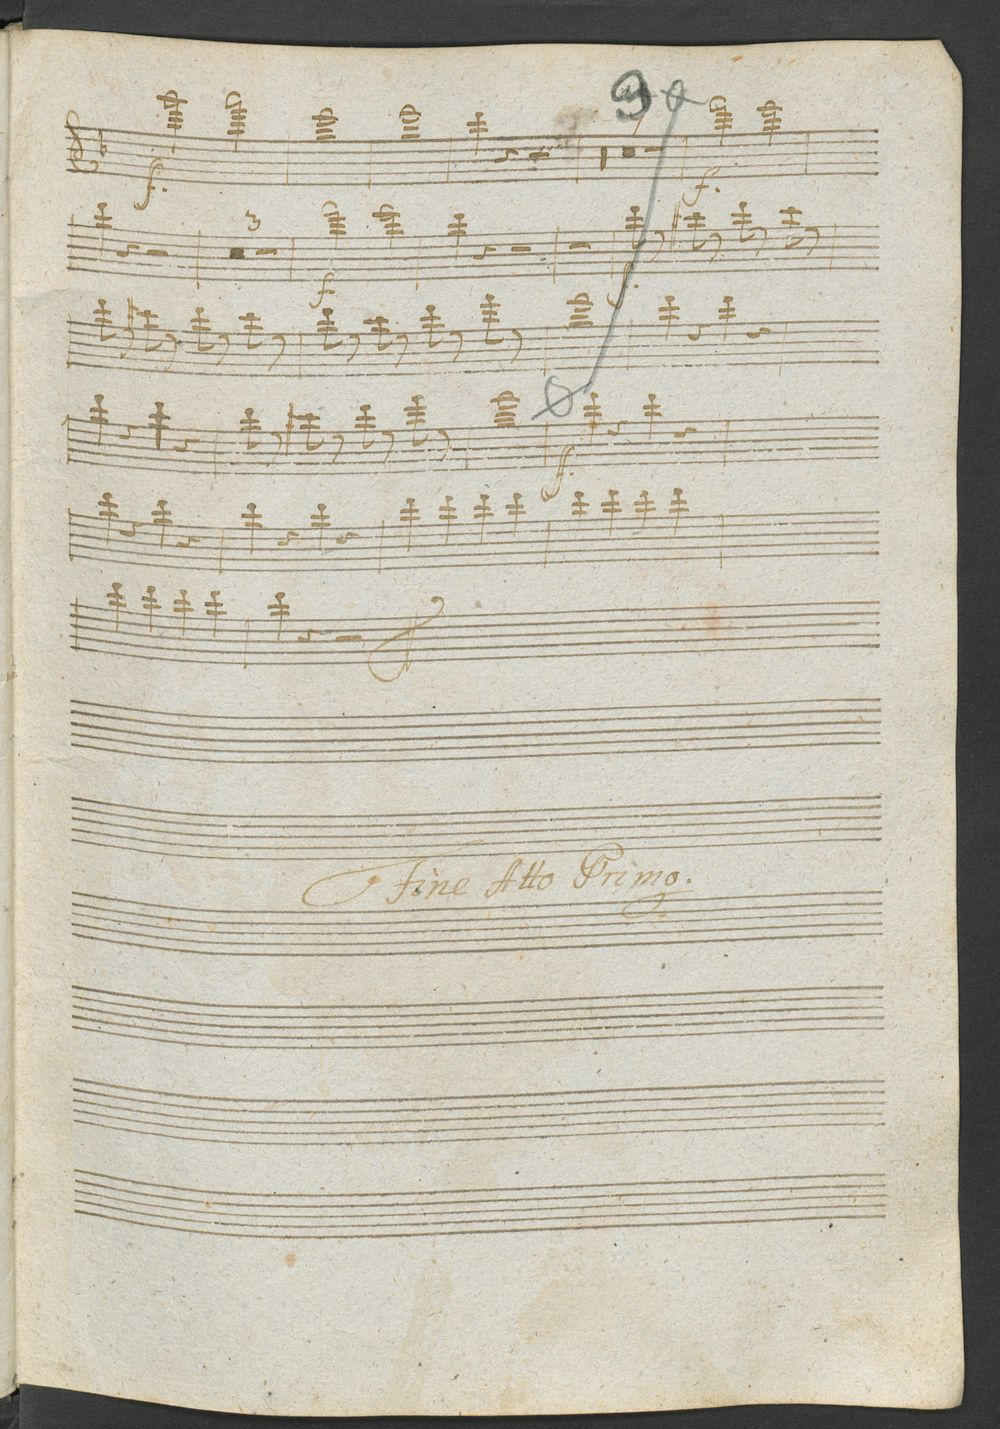 9
f.
7
f.
3
f
f.
f.
Fine Atto Primo.